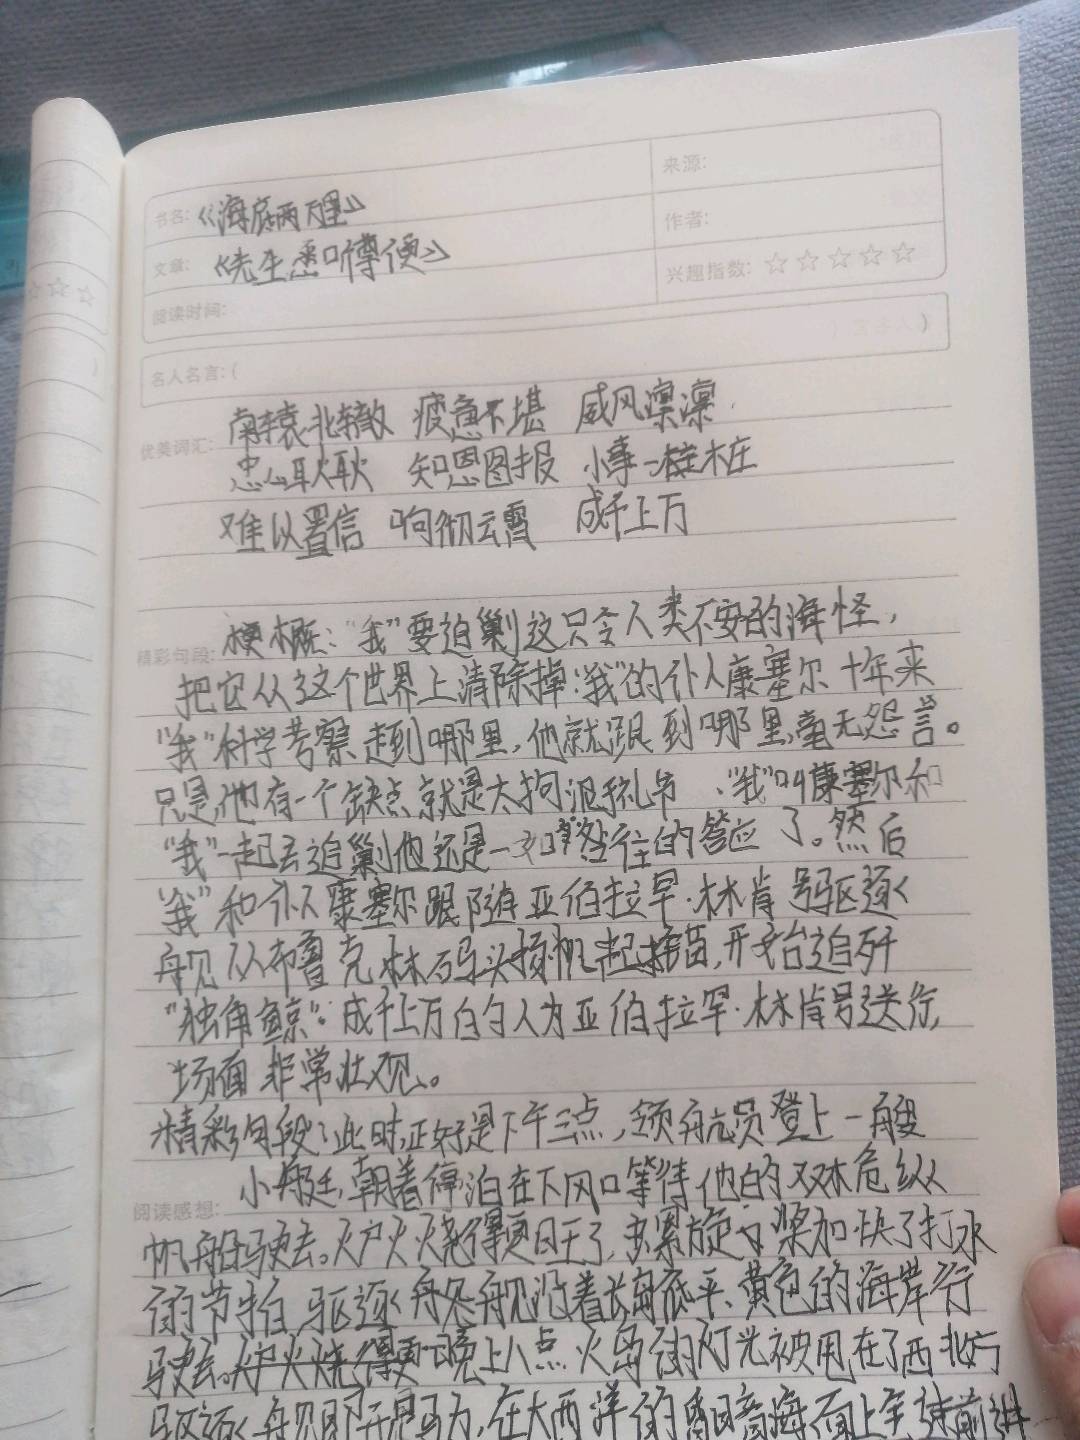 书名:《海底两万里》
来源:
文章:《先生悉口尊便》
作者:
阅读时间:
兴趣指数:☆☆☆☆☆
名人名言:( )
优美词汇: 南辕北辙 疲惫不堪 威风凛凛
忠心耿耿 知恩图报 小事一桩桩
难以置信 响彻云霄 成千上万
精彩句段: 梗概:“我”要追剿这只令人类不安的海怪,
把它从这个世界上清除掉:“我”的仆人康塞尔十年来
“我”科学考察走到哪里,他就跟到哪里,毫无怨言。
只是他有一个缺点就是太拘泥礼节、“我”叫康塞尔和
“我”一起去追剿他还是一如 往的答应了。然后
“我”和仆人康塞尔跟随亚伯拉罕·林肯号驱逐
舰从布鲁克林码头 起锚,开始追歼
“独角鲸”:成千上万的人为亚伯拉罕·林肯号送行,
场面非常壮观。
精彩句段:此时,正好是下午三点,领航员登上一艘
阅读感想: 小艇,朝着停泊在下风口等待他的双桅纵
帆船驶去。炉火烧得更旺了,螺旋桨加快了打水
的节拍,驱逐舰沿着长岛低平、黄色的海岸行
驶去。 晚上八点火岛的灯光被甩在了西北方
驱逐舰即开足马力,在大西洋的 暗海面上全速前进